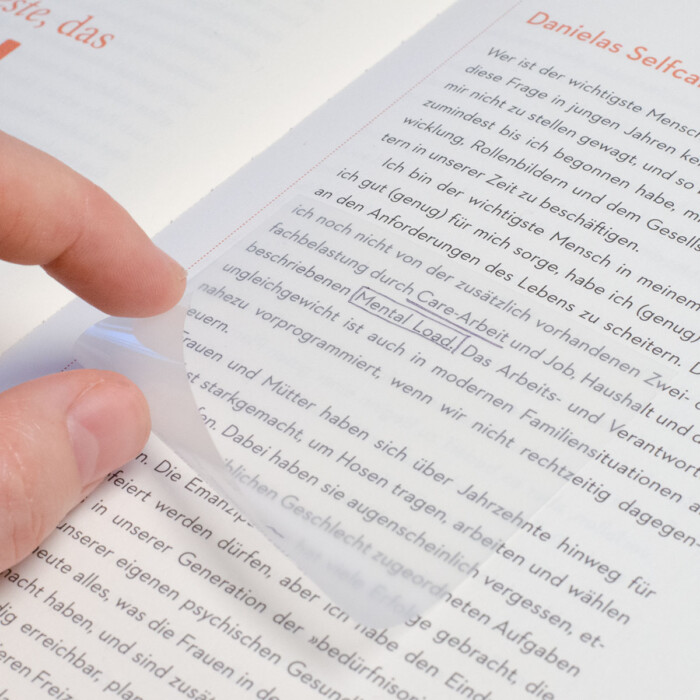 ste, das
Danielas Selfca
Wer ist der wichtigste Mensc
diese Frage in jungen Jahren ke
mir nicht zu stellen gewagt, und so
zumindest bis ich begonnen habe, m
wicklung, Rollenbildern und dem Gesells
tern in unserer Zeit zu beschäftigen.
Ich bin der wichtigste Mensch in meinem
ich gut (genug) für mich sorge, habe ich (genug)
an den Anforderungen des Lebens zu scheitern. D
ich noch nicht von der zusätzlich vorhandenen Zwei-
fachbelastung durch Care-Arbeit und Job, Haushalt und
beschriebenen Mental Load. Das Arbeits- und Verantwor
ungleichgewicht ist auch in modernen Familiensituationen a
nahezu vorprogrammiert, wenn wir nicht rechtzeitig dagegen-
euern.
rauen und Mütter haben sich über Jahrzehnte hinweg für
st starkgemacht, um Hosen tragen, arbeiten und wählen
fen. Dabei haben sie augenscheinlich vergessen, et-
blichen Geschlecht zugeordneten Aufgaben
n. Die Emanzip
ge gebracht, die
ifeiert werden dürfen, aber ich habe den Eind
in unserer Generation der »bedürfnisor
unserer eigenen psychischen Gesund
heute alles, was die Frauen in de
macht haben, und sind zusät
dig erreichbar, plan
eren Freiz